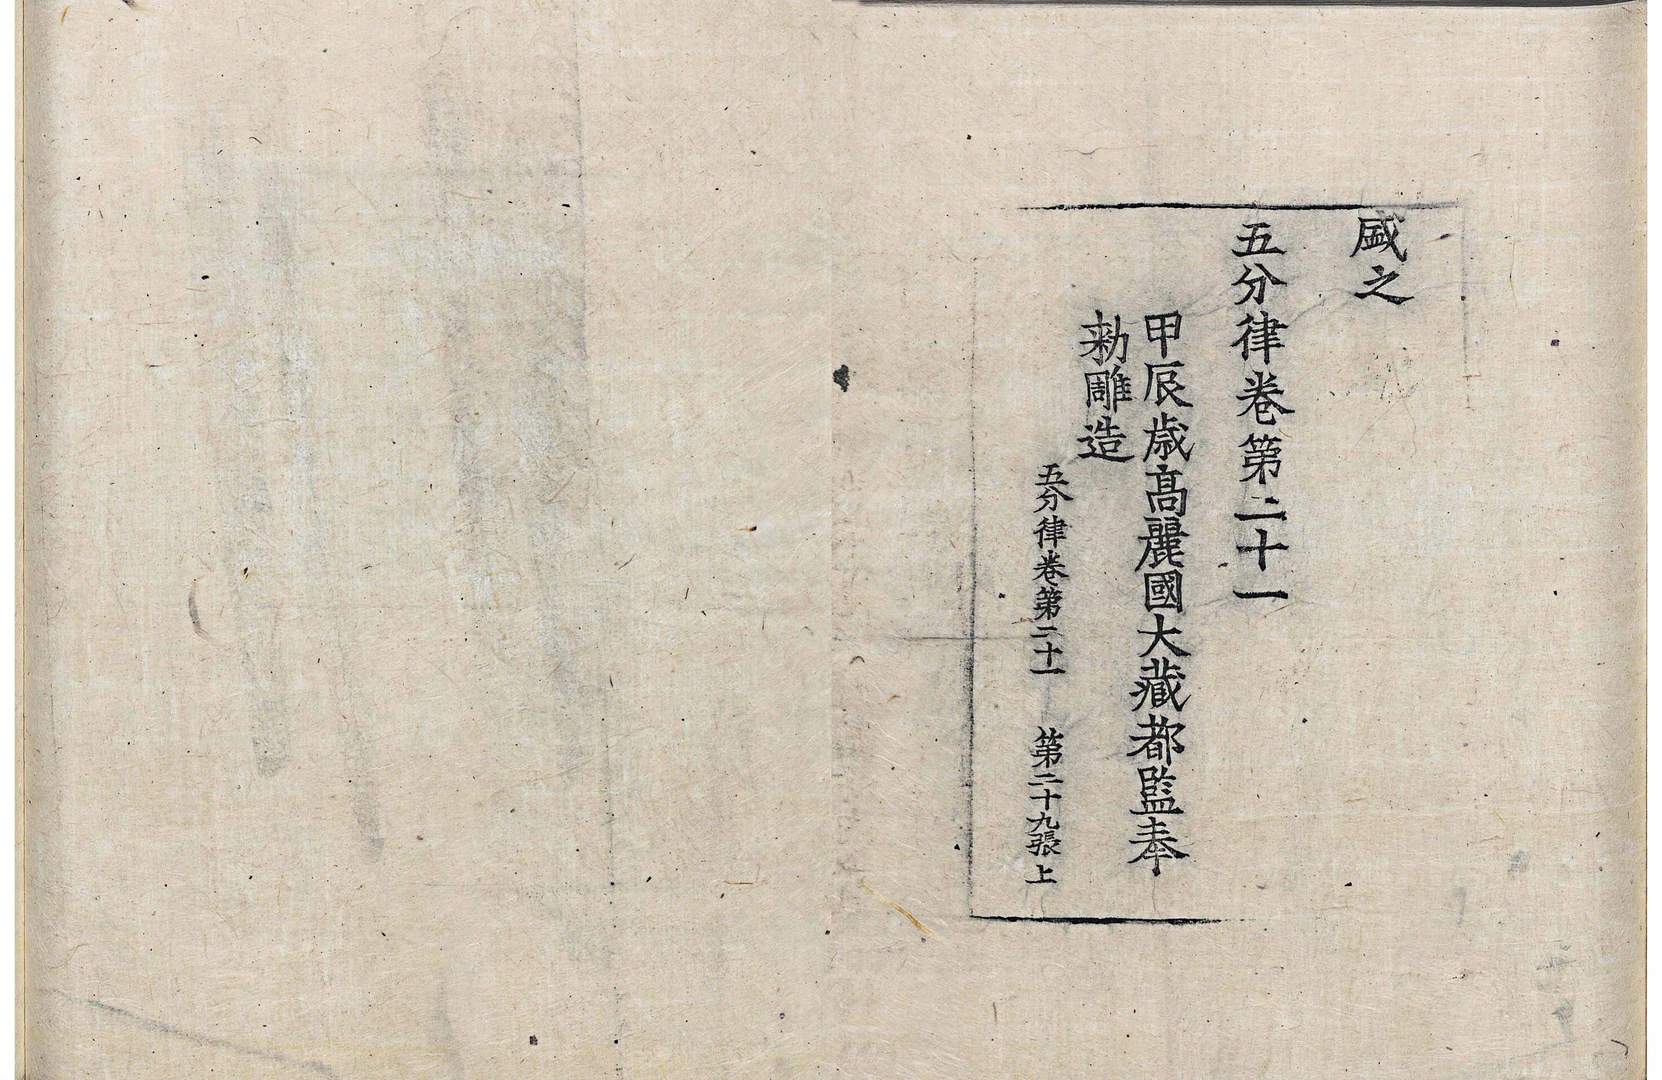 盛之
五分律卷第二十一
甲辰歳髙麗國大藏都監奉
勑雕造
五分律卷第二十一　第二十九張　上